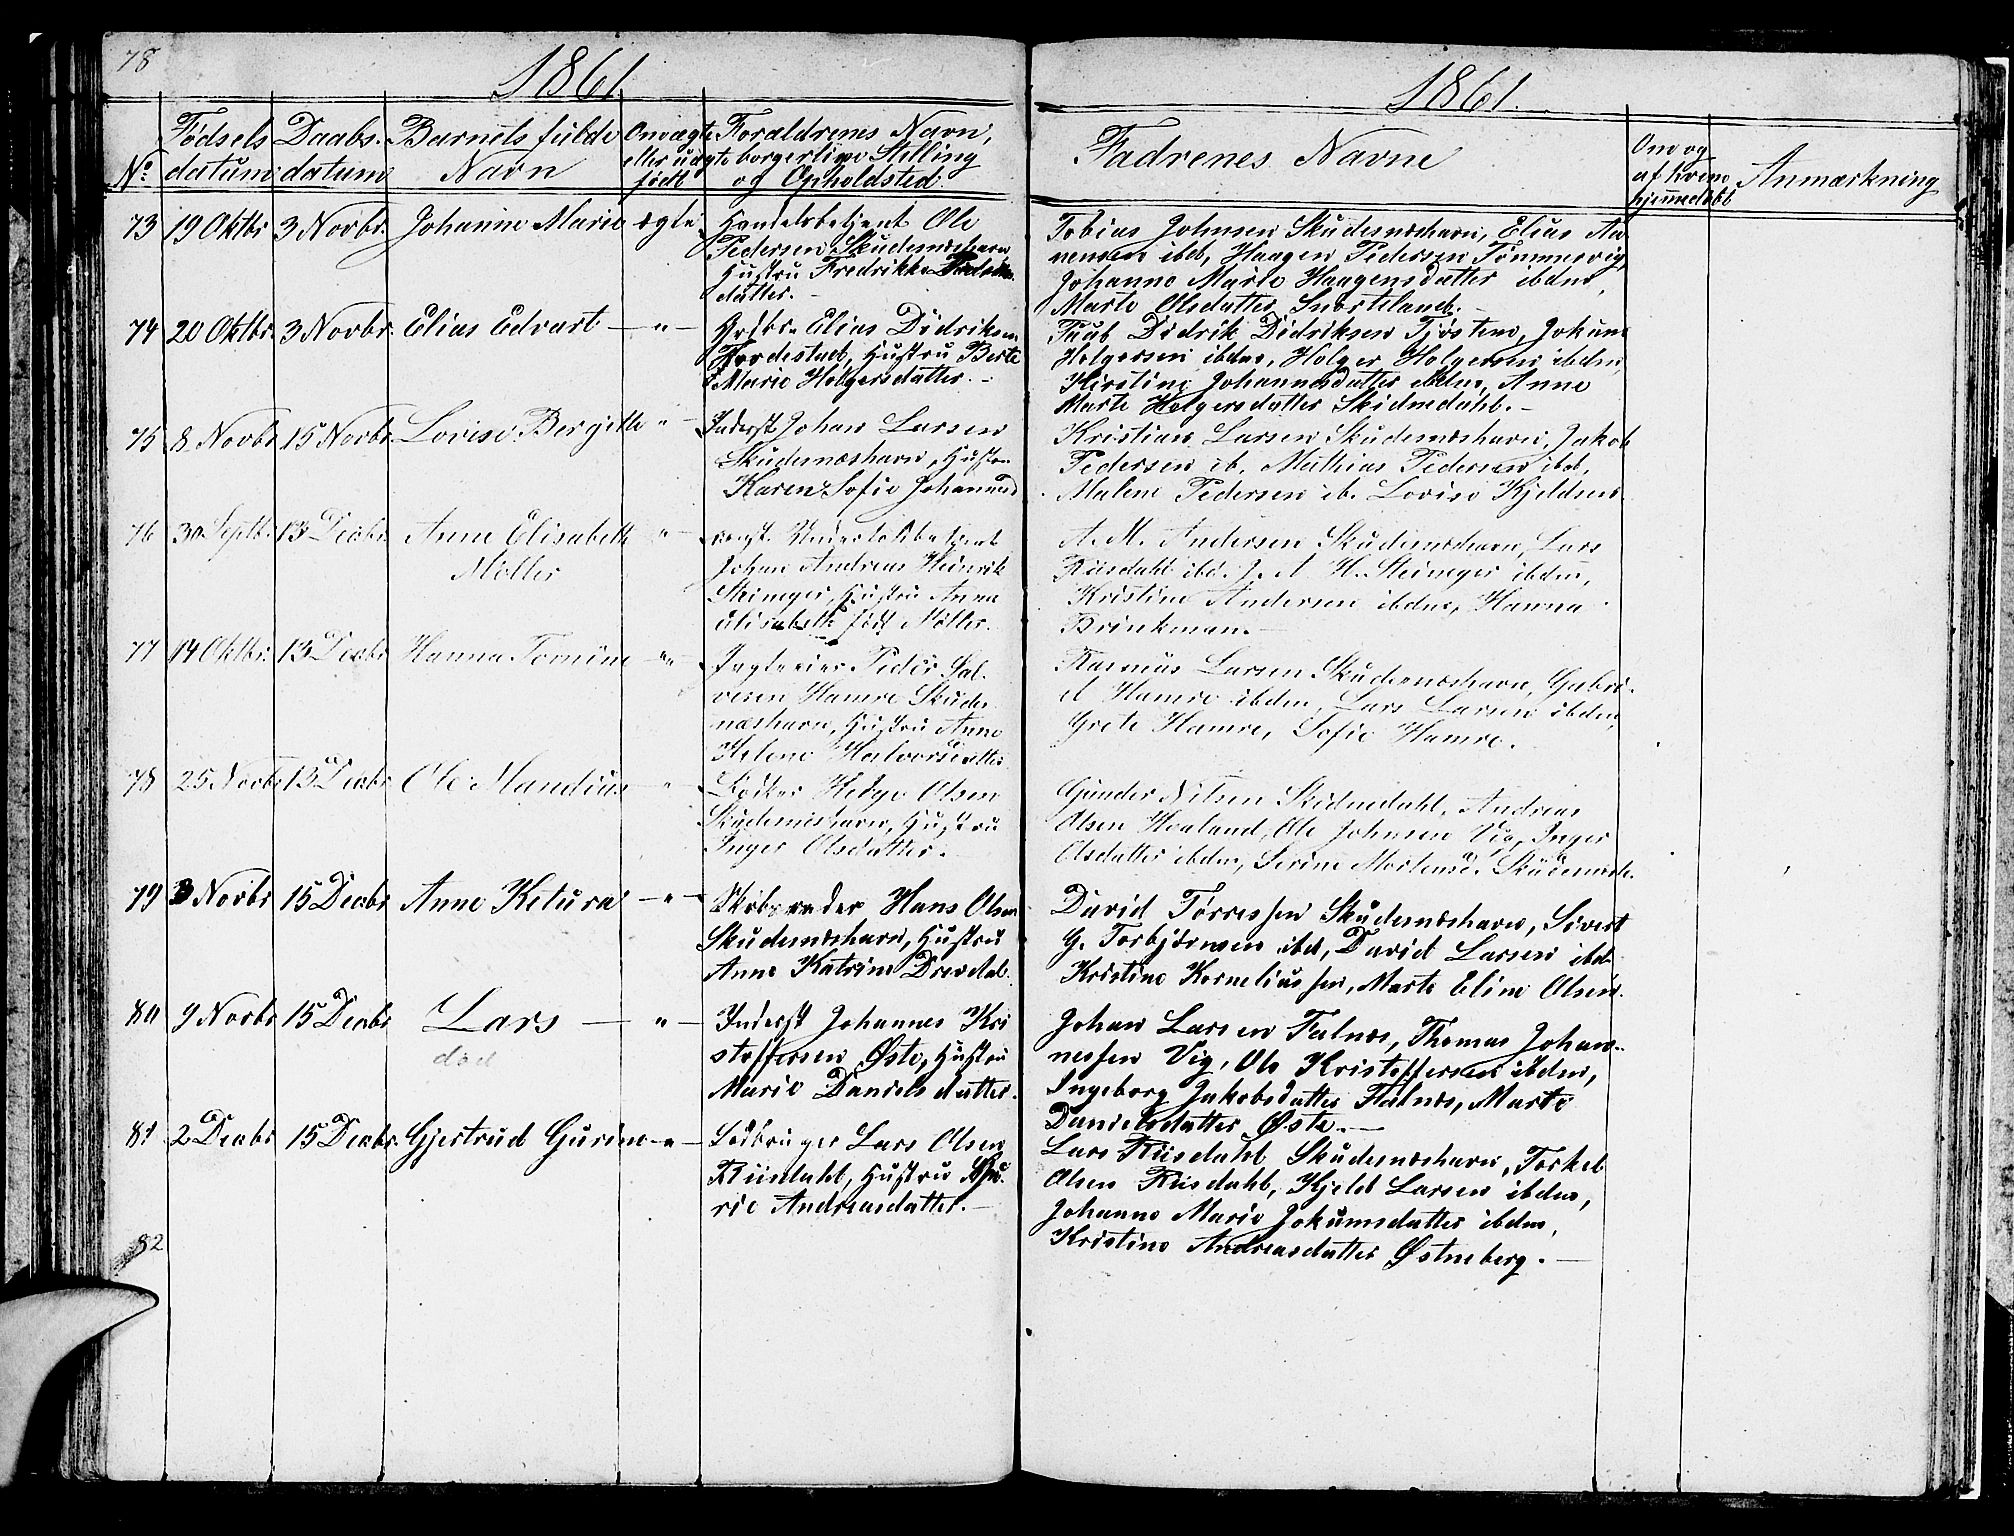 78
1861
No
Fødsels
datum
Daabs
datum
Barnets fulde
Navn
Om ægte
eller uægte
født
Forældrenes Navn,
borgerlige Stilling
og Opholdsted
73 19 Oktbr 3 Novbr. Johanne Marie ægte
Handelsbetjent Ole
Pedersen Skudesnæshavn
Hustru Fredrikke
datter.
74 20 Oktbr. 3 Novbr. Elias Edvart — " —
Elias Didriksen
Hustru Berte
Marie Holgersdatter. -
75 8 Novbr 15 Novbr. Lovise Bergitte " -
Inderst Johan Larsen
Skudesnæshavn, Hustru
Karen Sofie Johannesd
76 30 Septb. 13 Decbr Anne Elisabeth " -
Møller
const. Undertoldbetjent
Johan Andreas Heinrik
Steineger, Hustru Anna
Elisabeth født Møller.
77 14 Oktbr. 13 Decbr Hanna Tomine - " -
Jagteier Peder Sal-
vesen Hamre Skudes
næshavn, Hustru Anne
Helene Halvorsdatter
78 25 Novbr 13 Decbr Ole Mandius - " -
Bødker Helge Olsen
Skudesneshavn, Hustru
Inger Olsdatter.
79 3 Novbr 15 Decbr Anne Ketura - " -
Skibsreder Hans Olsen
Skudesnæshavn, Hustru
Anne Katrine Drevdal
80 9 Novbr 15 Decbr Lars — " —
død
Inderst Johannes Kri
stoffersen Øste, Hustru
Marie Danielsdatter.
81 2 Decbr 15 Decbr. Gjertrud Gurine - " -
Ledbruger Lars Olsen
Riisdahl, Hustru Gu-
rie Andreasdatter. -
82
1861.
Fadrenes Navne
Om og
af hvem
hjemmedøbt
Anmærkning
Tobias Johnsen Skudesnæshavn, Elias An
nensen ibd, Haagen Pedersen Tømmervig
Johanne Marie Haagensdatter ibdm,
Marte Olsdatter Snørteland. -
Didrik Didriksen Tjøsten, Jokum
Holgersen ibdm, Holger Holgersen ibdm,
Kirstine Johannesdatter ibdm, Anne
Marte Holgersdatter Skidnedahl. -
Kristian Larsen Skudesnæshavn, Jakob
Pedersen ib. Mathias Pedersen ibd,
Malene Pedersen ib. Lovise Kjeldsen
A. M. Andersen Skudesnæshavn, Lars
Riisdahl ibd. J. A. H. Steineger ibdm,
Kristine Andersen ibdm, Hanna
Brinkman. -
Rasmus Larsen Skudesnæshavn, Gabri-
el Hamre ibdm, Lars Larsen ibdm,
Grete Hamre, Sofie Hamre.
Gunder Nilsen Skidnedahl, Andreas
Olsen Høaland, Ole Johnsen Vig, Inger
Olsdatter ibdm, Serine Mortensd. Skudesnæsh.
David Tørressen Skudesnæshavn, Sivert
G. Torbjørnsen ibd, David Larsen ibd.
Kristine Korneliussen, Marte Eline Olsen.
Johan Larsen Falnæs, Thomas Johan-
nessen Vig, Ole Kristoffersen ibdm,
Ingeborg Jakobsdatter Falnæs, Marte
Danielsdatter Øste. —
Lars Riisdahl Skudesnæshavn, Torkel
Olsen Riisdahl, Kjeld Larsen ibdm,
Johanne Marie Jokumsdatter ibdm,
Kristine Andreasdatter Østneberg. —